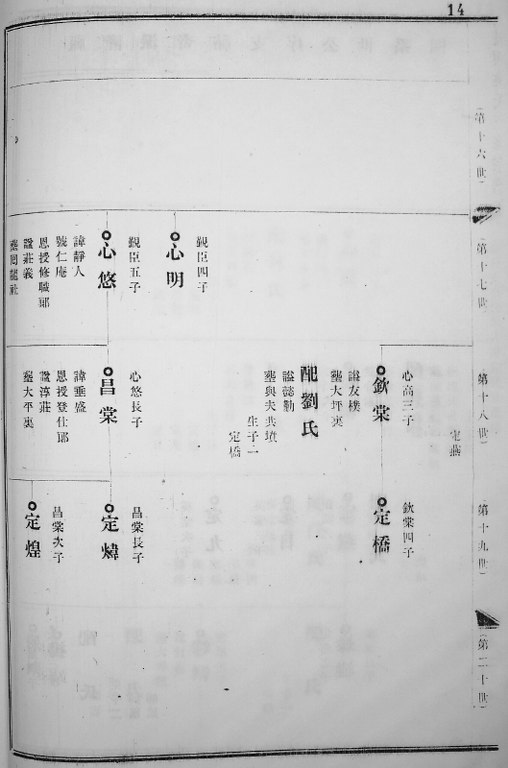 14
第十六世
第十七世
覲臣四子
心明
覲臣五子
心悠
諱靜人
號仁庵
恩授修職郎
諡莊義
第十八世
定燕
心高三子
欽棠
諡友樸
塟大坪裏
配劉氏
諡懿勤
塟與夫共墳
生子一
定橋
心悠長子
昌棠
諱垂盛
恩授登仕郎
諡淳莊
塟大平裏
第十九世
欽棠四子
定橋
昌棠長子
定煒
昌棠次子
定煌
第二十世